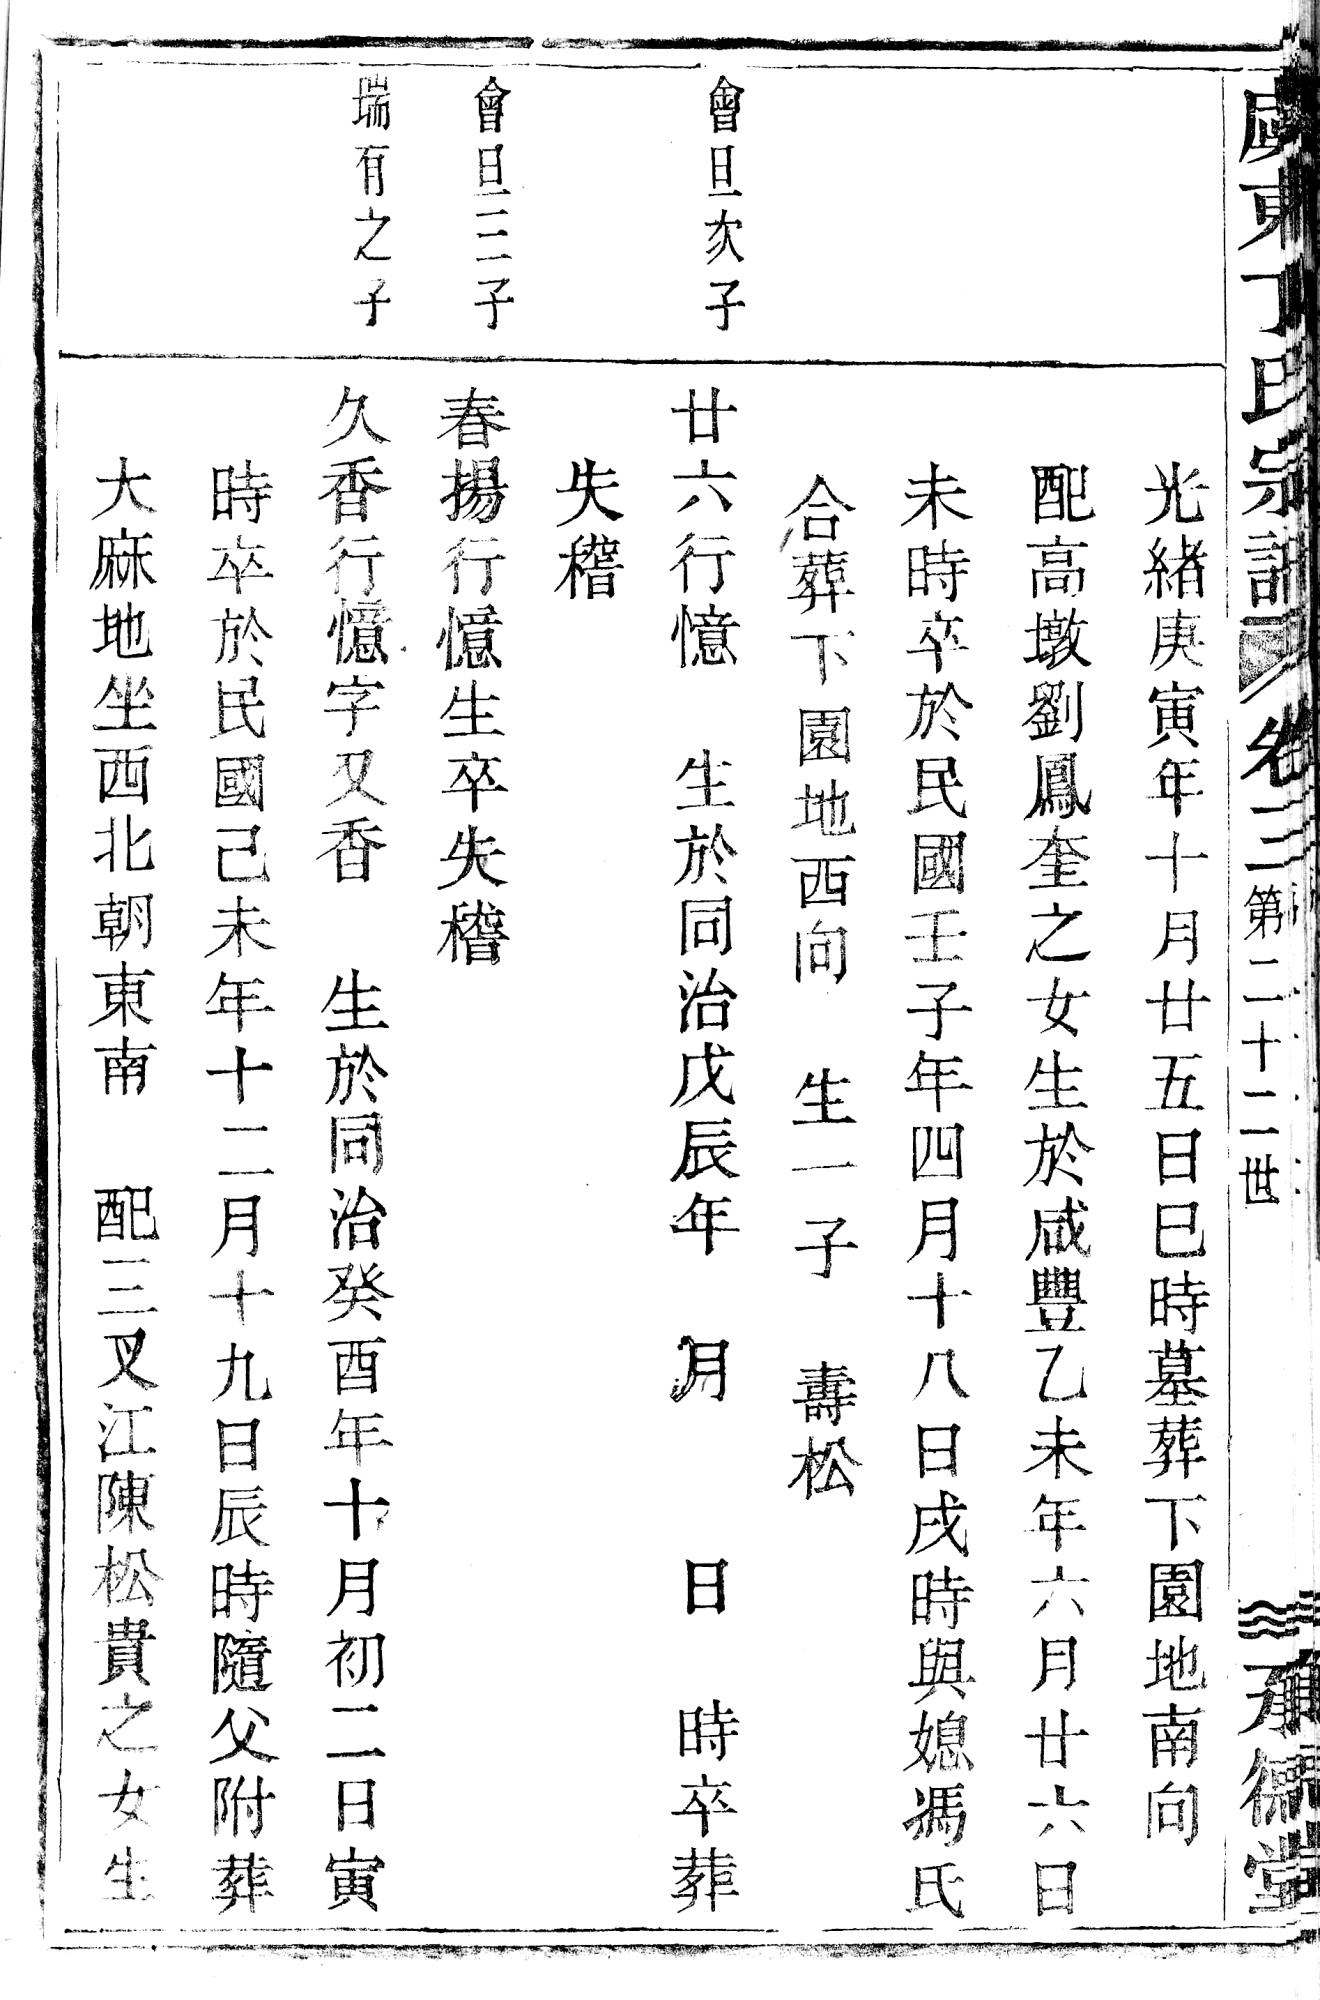 虞東丁氏宗譜 卷三 第二十二世 承德堂
光緒庚寅年十月廿五日巳時墓葬下園地南向
配高墩劉鳳奎之女生於咸豐乙未年六月廿六日
未時卒於民國壬子年四月十八日戌時與媳馮氏
合葬下園地西向 生一子 壽松
會旦次子
廿六行憶 生於同治戊辰年 月 日 時卒葬
失稽
會旦三子
春揚行憶生卒失稽
瑞有之子
久香行憶字又香 生於同治癸酉年十月初二日寅
時卒於民國己未年十二月十九日辰時隨父附葬
大麻地坐西北朝東南 配三叉江陳松貴之女生